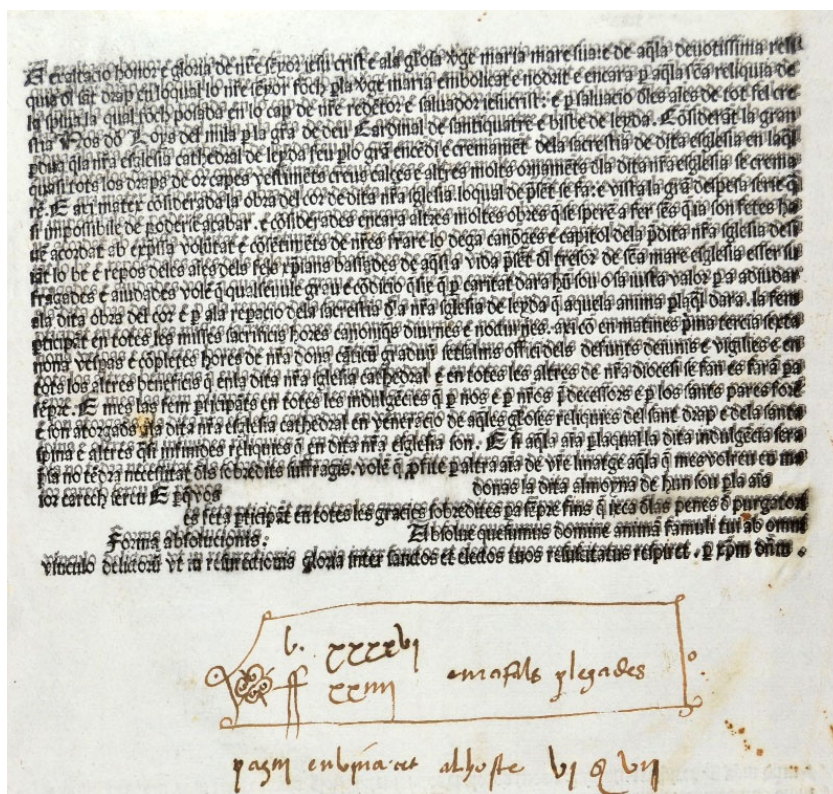 A exaltacio honor e gloria de nr̃e seẏor iesu crist e ala gl'osa vg̃e maria mare sua e de aq̃lla deuotissima reli
quia d'l sãt drap en loqual lo nr̃e seẏor foch p̱la vg̃e maria embolicat e nodrit e encara p̱ aq̃lla sc̃a reliquia de
la spina la qual foch posada en lo cap de nr̃e redẽtor e saluador iesucrist: e p̱ saluacio d'les aĩes de tot fel cre
stia Nos dõ Loẏs del mila p̱ la gr̃a de deu Cardinal de santiquatre e bisbe de leyda. Cõsiderãt la gran
p̱dua q̃ la nr̃a esglesia cathedral de leyda feu p̱lo grã encẽdi e cremamẽt dela sacrestia de dita esglesia en laq̃l
quasi tots los draps de or capes vestimẽts creus calzes e altres molts ornamẽts d'la dita nr̃a esglesia se crema
rẽ. E axi matex cõsiderada la obra del cor de dita nr̃a iglesia. loqual de p̃sẽt se fa: e vista la grã despesa seria q̃
si impossibile de poderse acabar. e cõsiderades encara altres moltes obres q̃ se sperẽ a fer
uẽ acordat ab expssa volũtat e cõsẽtimẽts de nr̃es frares lo dega canõges e capitol dela p̱dita nr̃a iglesia desi
iãt lo be e repos deles aĩes dels fels xp̃ians
fragades e aiudades volẽ q̃ qualseuulle grau e cõdicio q̃ sie q̃ p̱ caritat dara hũ sou o sa iusta valor p̱ a adiudar
ala dita obra del cor e p̱ ala repacio dela sacrestia d'la nr̃a iglesia de leyda q̃ aquela anima p̱ laq̃l dara. la fem
p̱ticipãt en totes les misses sacrificis hores canoniq̃s diurnes e nocturnes. axi cõ en matines p̃ima tercia sexta
nona vespas e cõpletes hores de nr̃a dona cãticũ graduũ setsalms offici dels defunts deiunis e vigilies e en
tots los altres beneficis q̃ en la dita nr̃a iglesia cathedral e en totes les altres de nr̃a diocesi se fan es farã p̱a
sẽpre. E mes las fem p̱ticipãts en totes les indulgẽcies q̃ p̱ nos e p̱ nr̃os p̱decessors e p̱ los sants pares forẽ
e son atorgades ala dita nr̃a esglesia cathedral en veneracio de aq̃les gl'oses reliquies del sant drap e dela santa
spina e altres q̃si infinides reliquies q̃ en dita nr̃a esglesia son. E si aq̃la aĩa p̱ laqual la dita indulgẽcia sera
p̱sa no tẽdra necessitat d'ls sobredits suffragis. volẽ q̃ p̱fite p̱ altra aĩa de vr̃e linatge aq̃la q̃ mes volreu en ma
ior carech sereu E p̱q̃ vos donas la dita almoyna de hun sou p̱la aĩa
es feta p̱ticipãt en totes les gracies sobredites p̱a sẽpre fins q̃ d'las penes d' purgatori
Forma absolucionis: Absolue quesumus domine animã famuli tui ab omni
vinculo delictorũ vt in resurrectionis gloria inter sanctos et electos tuos resuscitatus respiret. p̱ xp̃m dñm.
b. xxxxvi
xxiiii plegades
alhoste vi vii